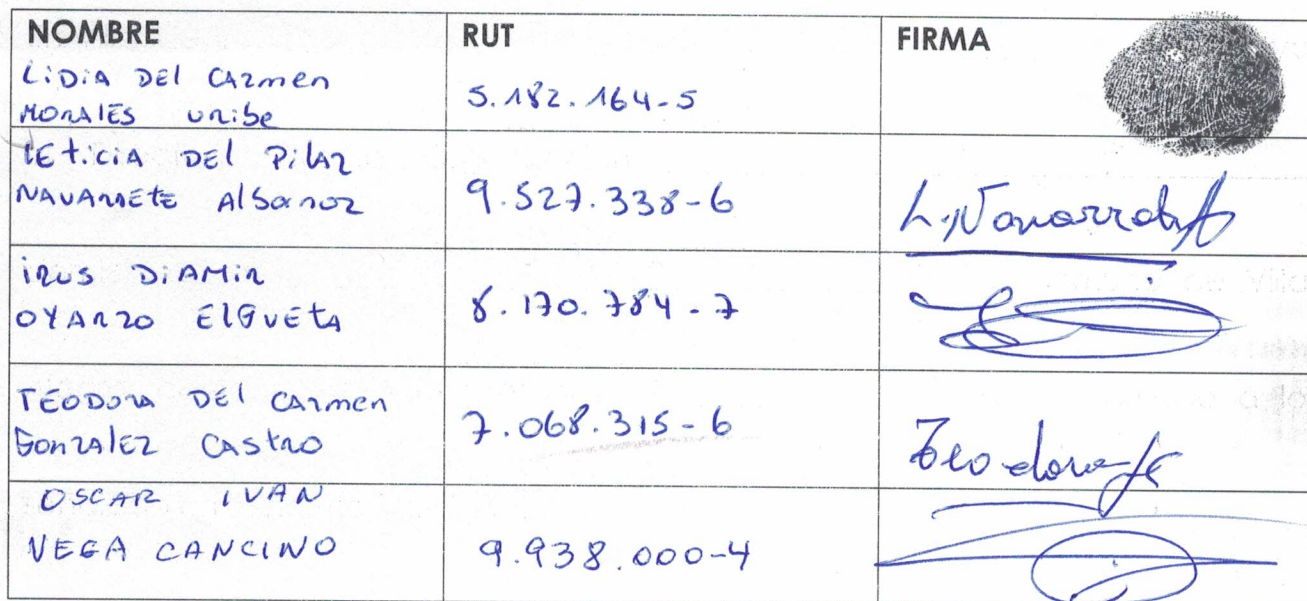 NOMBRE RUT FIRMA
LiDiA DEl CARmen
MORAlES uribe 5.182.164-5
lEticiA DEl PilAR
NAVARREtE Albornoz 9.527.338-6 L. Navarrete A
iRUS DiAMiR
OYARZO ElGUEtA 8.170.784-7
TEODORA DEl CARmen
GonzAlEZ CAStRO 7.068.315-6 Teodora
OSCAR IVAN
VEGA CANCINO 9.938.000-4